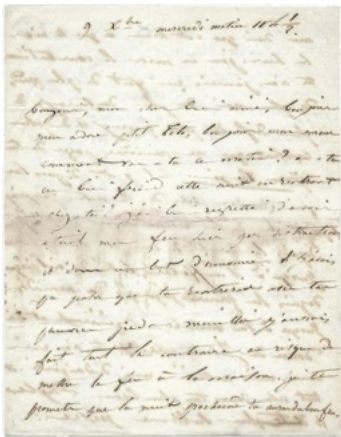 9 Xbre mercredi matin 11 h ½
Bonjour, mon cher bien aimé, bonjour
mon adoré petit Toto, bonjour mon amour
comment vas-tu ce matin? as-tu
eu bien froid cette nuit en rentrant
chez toi? j'ai bien regretté d'avoir
éteint mon feu hier par distraction
et dans un but d'économie. Si j'avais
pu que tu rentrerais avec tes
pauvres pieds mouillés j'aurais
fait tout le contraire au risque de
mettre le feu à la maison. je te
promets que la nuit prochaine tu auras du feu.